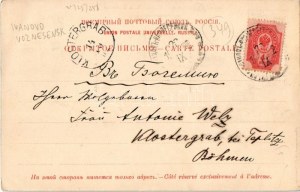 ВСЕМІРНЫЙ ПОЧТОВЫЙ СОЮЗЪ. РОССІЯ.
UNION POSTALE UNIVERSELLE. RUSSIE.
ОТКРЫТОЕ ПИСЬМО. — CARTE POSTALE.
IVANOVO
VOZNESENSK
KLOSTERGRAB
Въ Богемію
Ihro Wohlgeboren
Frau Antonie Welz
Klostergrab, bei Teplitz
Böhmen
На этой сторонѣ пишется только адресъ. — Côté réservé exclusivement à l'adresse.